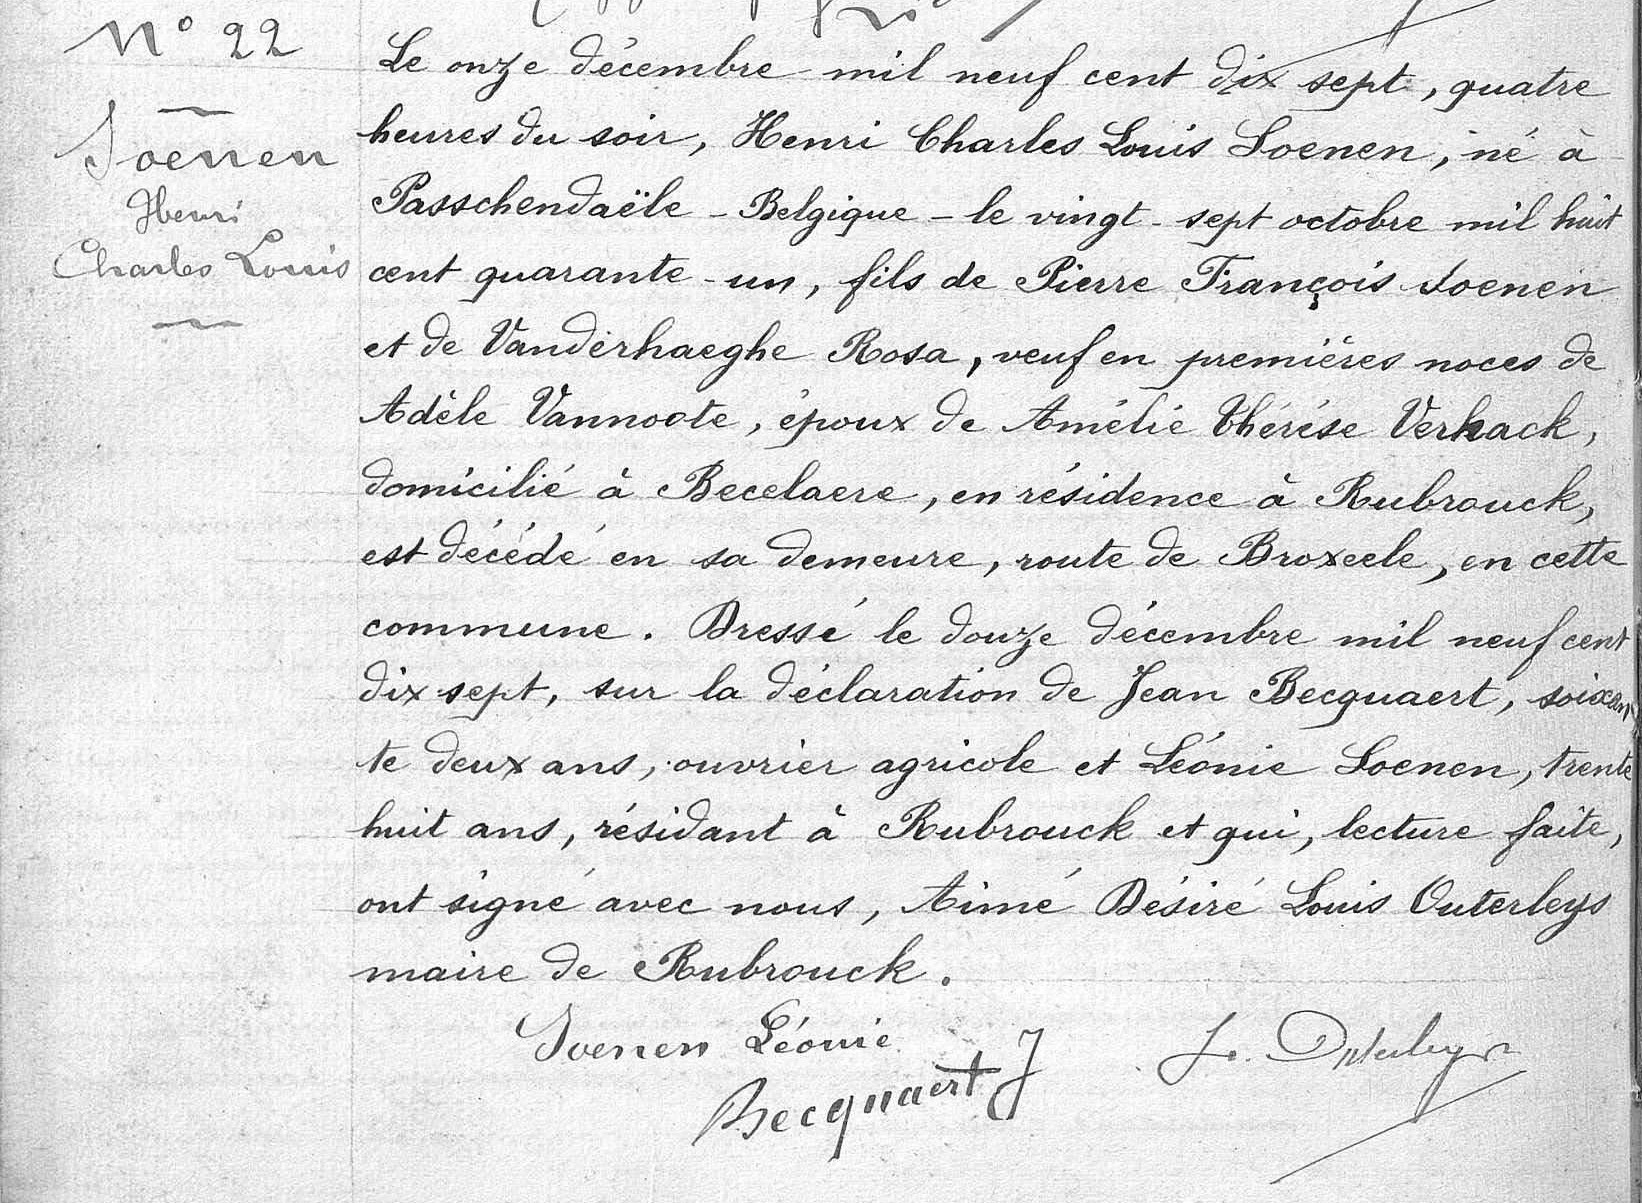 N° 22
Soenen
Henri
Charles Louis
Le onze décembre mil neuf cent dix sept, quatre
heures du soir, Henri Charles Louis Soenen, né à
Passchendaële - Belgique - le vingt-sept octobre mil huit
cent quarante-un, fils de Pierre François Soenen
et de Vanderhaeghe Rosa, veuf en premières noces de
Adèle Vannoote, époux de Amélie Thérèse Verhack,
domicilié à Becelaere, en résidence à Rubrouck,
est décédé en sa demeure, route de Broxeele, en cette
commune. Dressé le douze décembre mil neuf cent
dix sept, sur la déclaration de Jean Becquaert, soixan
te deux ans, ouvrier agricole et Léonie Soenen, trente
huit ans, résidant à Rubrouck et qui, lecture faite,
ont signé avec nous, Aimé Désiré Louis Outerleys
maire de Rubrouck.
Soenen Léonie
Becquaert J